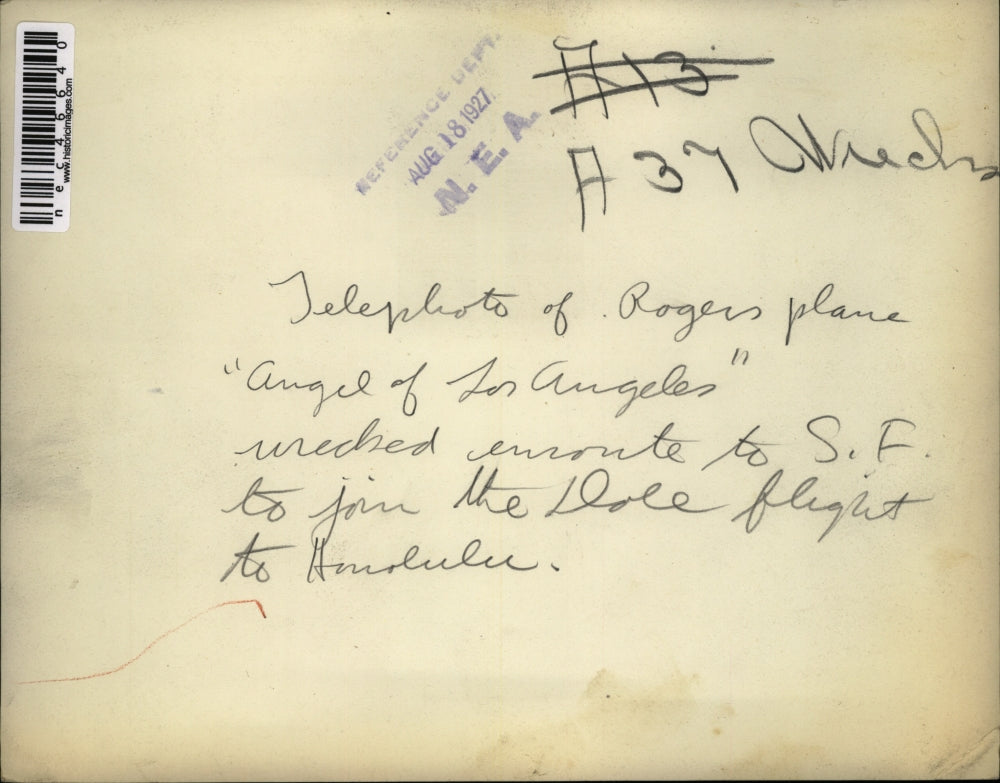 A 13
REFERENCE DEPT.
AUG 18 1927
N. E. A.
A 37 Wrecks
Telephoto of Rogers plane
"Angel of Los Angeles"
wrecked enroute to S. F.
to join the Dole flight
to Honolulu.
www.historicimages.com
nec46640